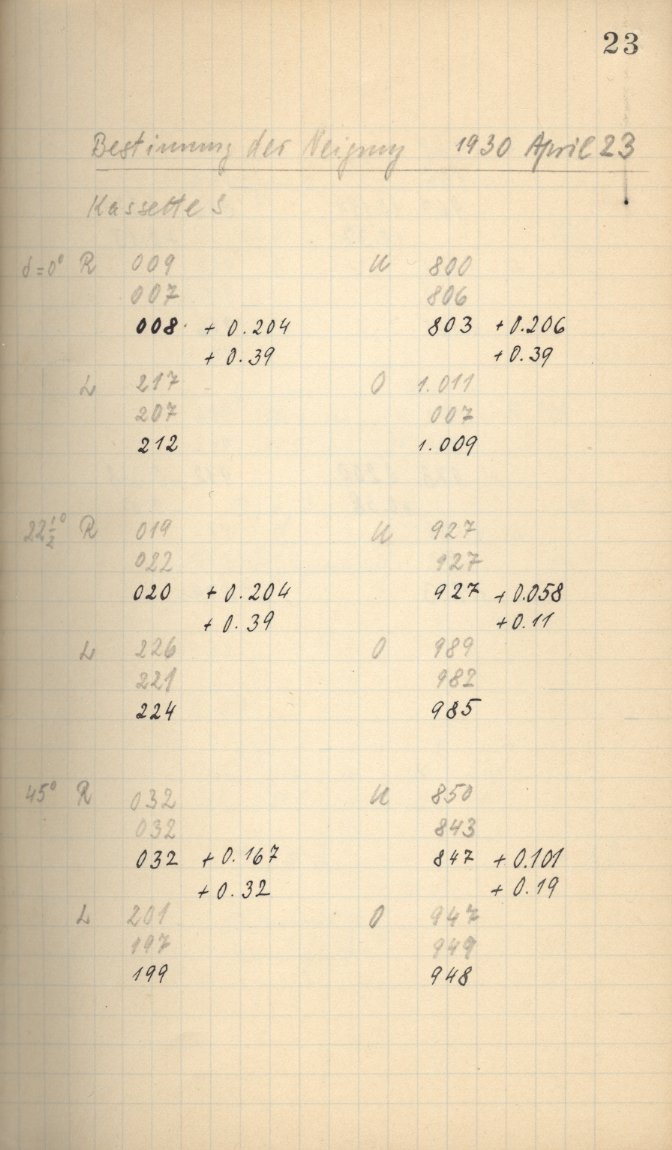 23
Bestimmung der Neigung 1930 April 23
Kassette S
δ=0° R 009 U 800
007 806
008 + 0.204 803 + 0.206
+ 0.39 + 0.39
L 217 O 1.011
207 007
212 1.009
22½° R 019 U 927
022 927
020 + 0.204 927 + 0.058
+ 0.39 + 0.11
L 226 O 989
221 982
224 985
45° R 032 U 850
032 843
032 + 0.167 847 + 0.101
+ 0.32 + 0.19
L 201 O 947
197 949
199 948